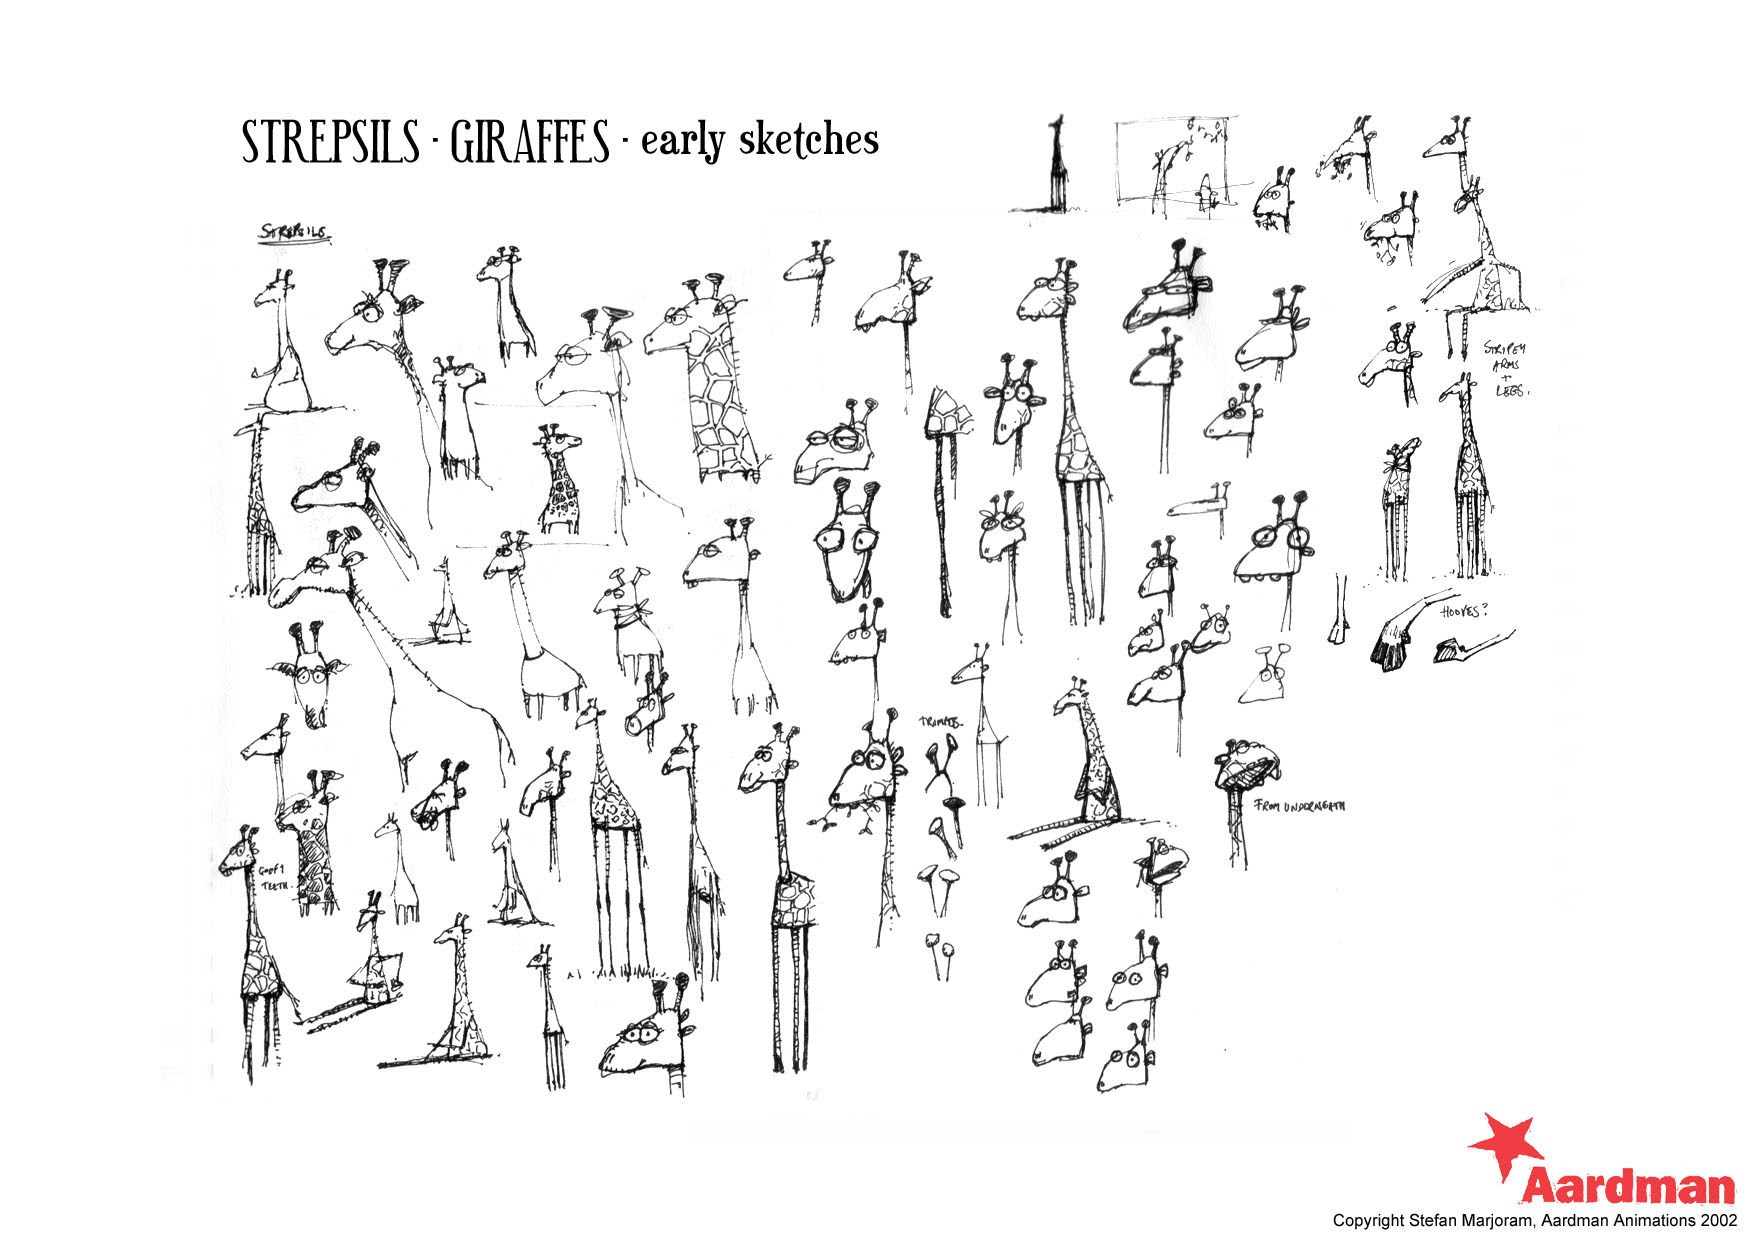 STREPSILS · GIRAFFES · early sketches
STREPSILS
STRIPEY
ARMS
+
LEGS.
HOOVES?
TRUMPETS.
FROM UNDERNEATH
GOOFY
TEETH.
Aardman
Copyright Stefan Marjoram, Aardman Animations 2002